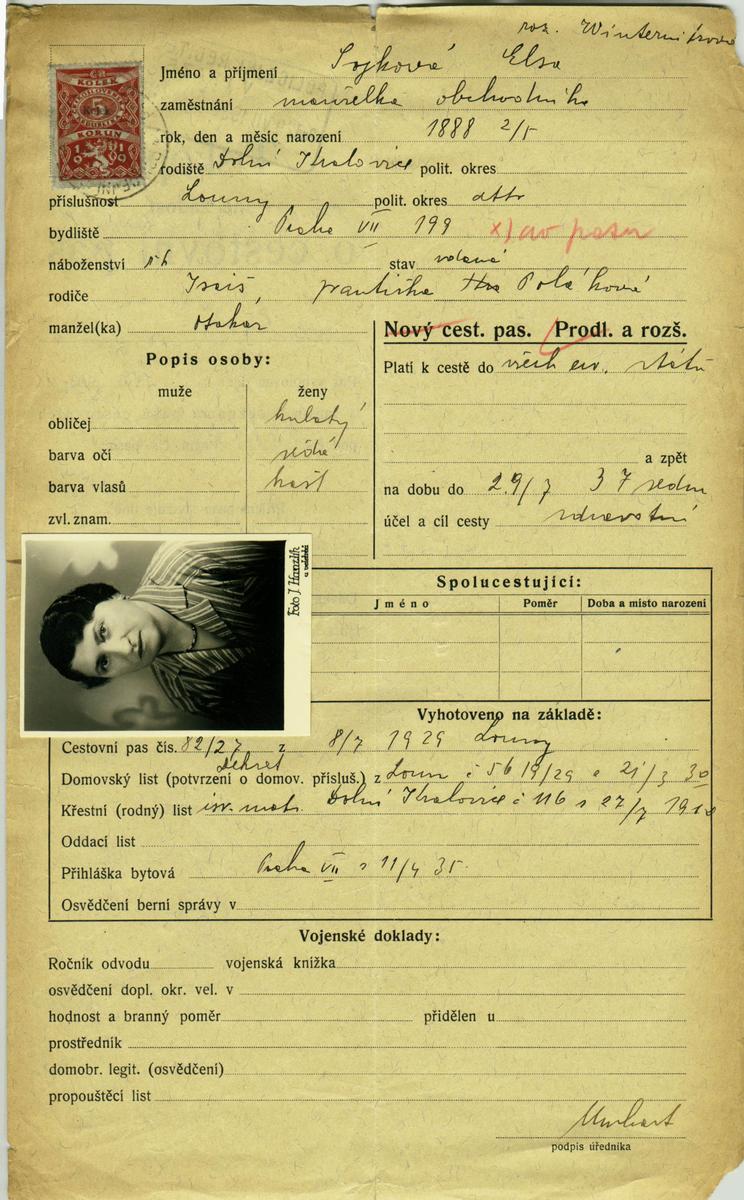 roz. Winternitzová
Jméno a příjmení Sojková Elsa
zaměstnání manželka obchodníka
rok, den a měsíc narození 1888 2/5
rodiště Dolní Kralovice polit. okres
příslušnost Louny polit. okres dtto
bydliště Praha VII 199 x)
náboženství stav vdaná
rodiče františka Poláková
manžel(ka) Otakar
KOLEK
5
KORUN
1919
Nový cest. pas. Prodl. a rozš.
Platí k cestě do všech ev. států
a zpět
na dobu do 29/7 37
účel a cíl cesty zdravotní
Popis osoby:
muže ženy
obličej kulatý
barva očí šedé
barva vlasů kašt
zvl. znam.
Foto J. Hanzlík
Spolucestující:
Jméno Poměr Doba a místo narození
Vyhotoveno na základě:
Cestovní pas čís. 82/27 z 8/7 1929 Louny
Dekret
Domovský list (potvrzení o domov. přísluš.) z Loun č 5619/29 21/3 30
Křestní (rodný) list isr. matr. Dolní Kralovice č 116 z 27/7
Oddací list
Přihláška bytová Praha VII z 11/4 35.
Osvědčení berní správy v
Vojenské doklady:
Ročník odvodu vojenská knížka
osvědčení dopl. okr. vel. v
hodnost a branný poměr přidělen u
prostředník
domobr. legit. (osvědčení)
propouštěcí list
podpis úředníka